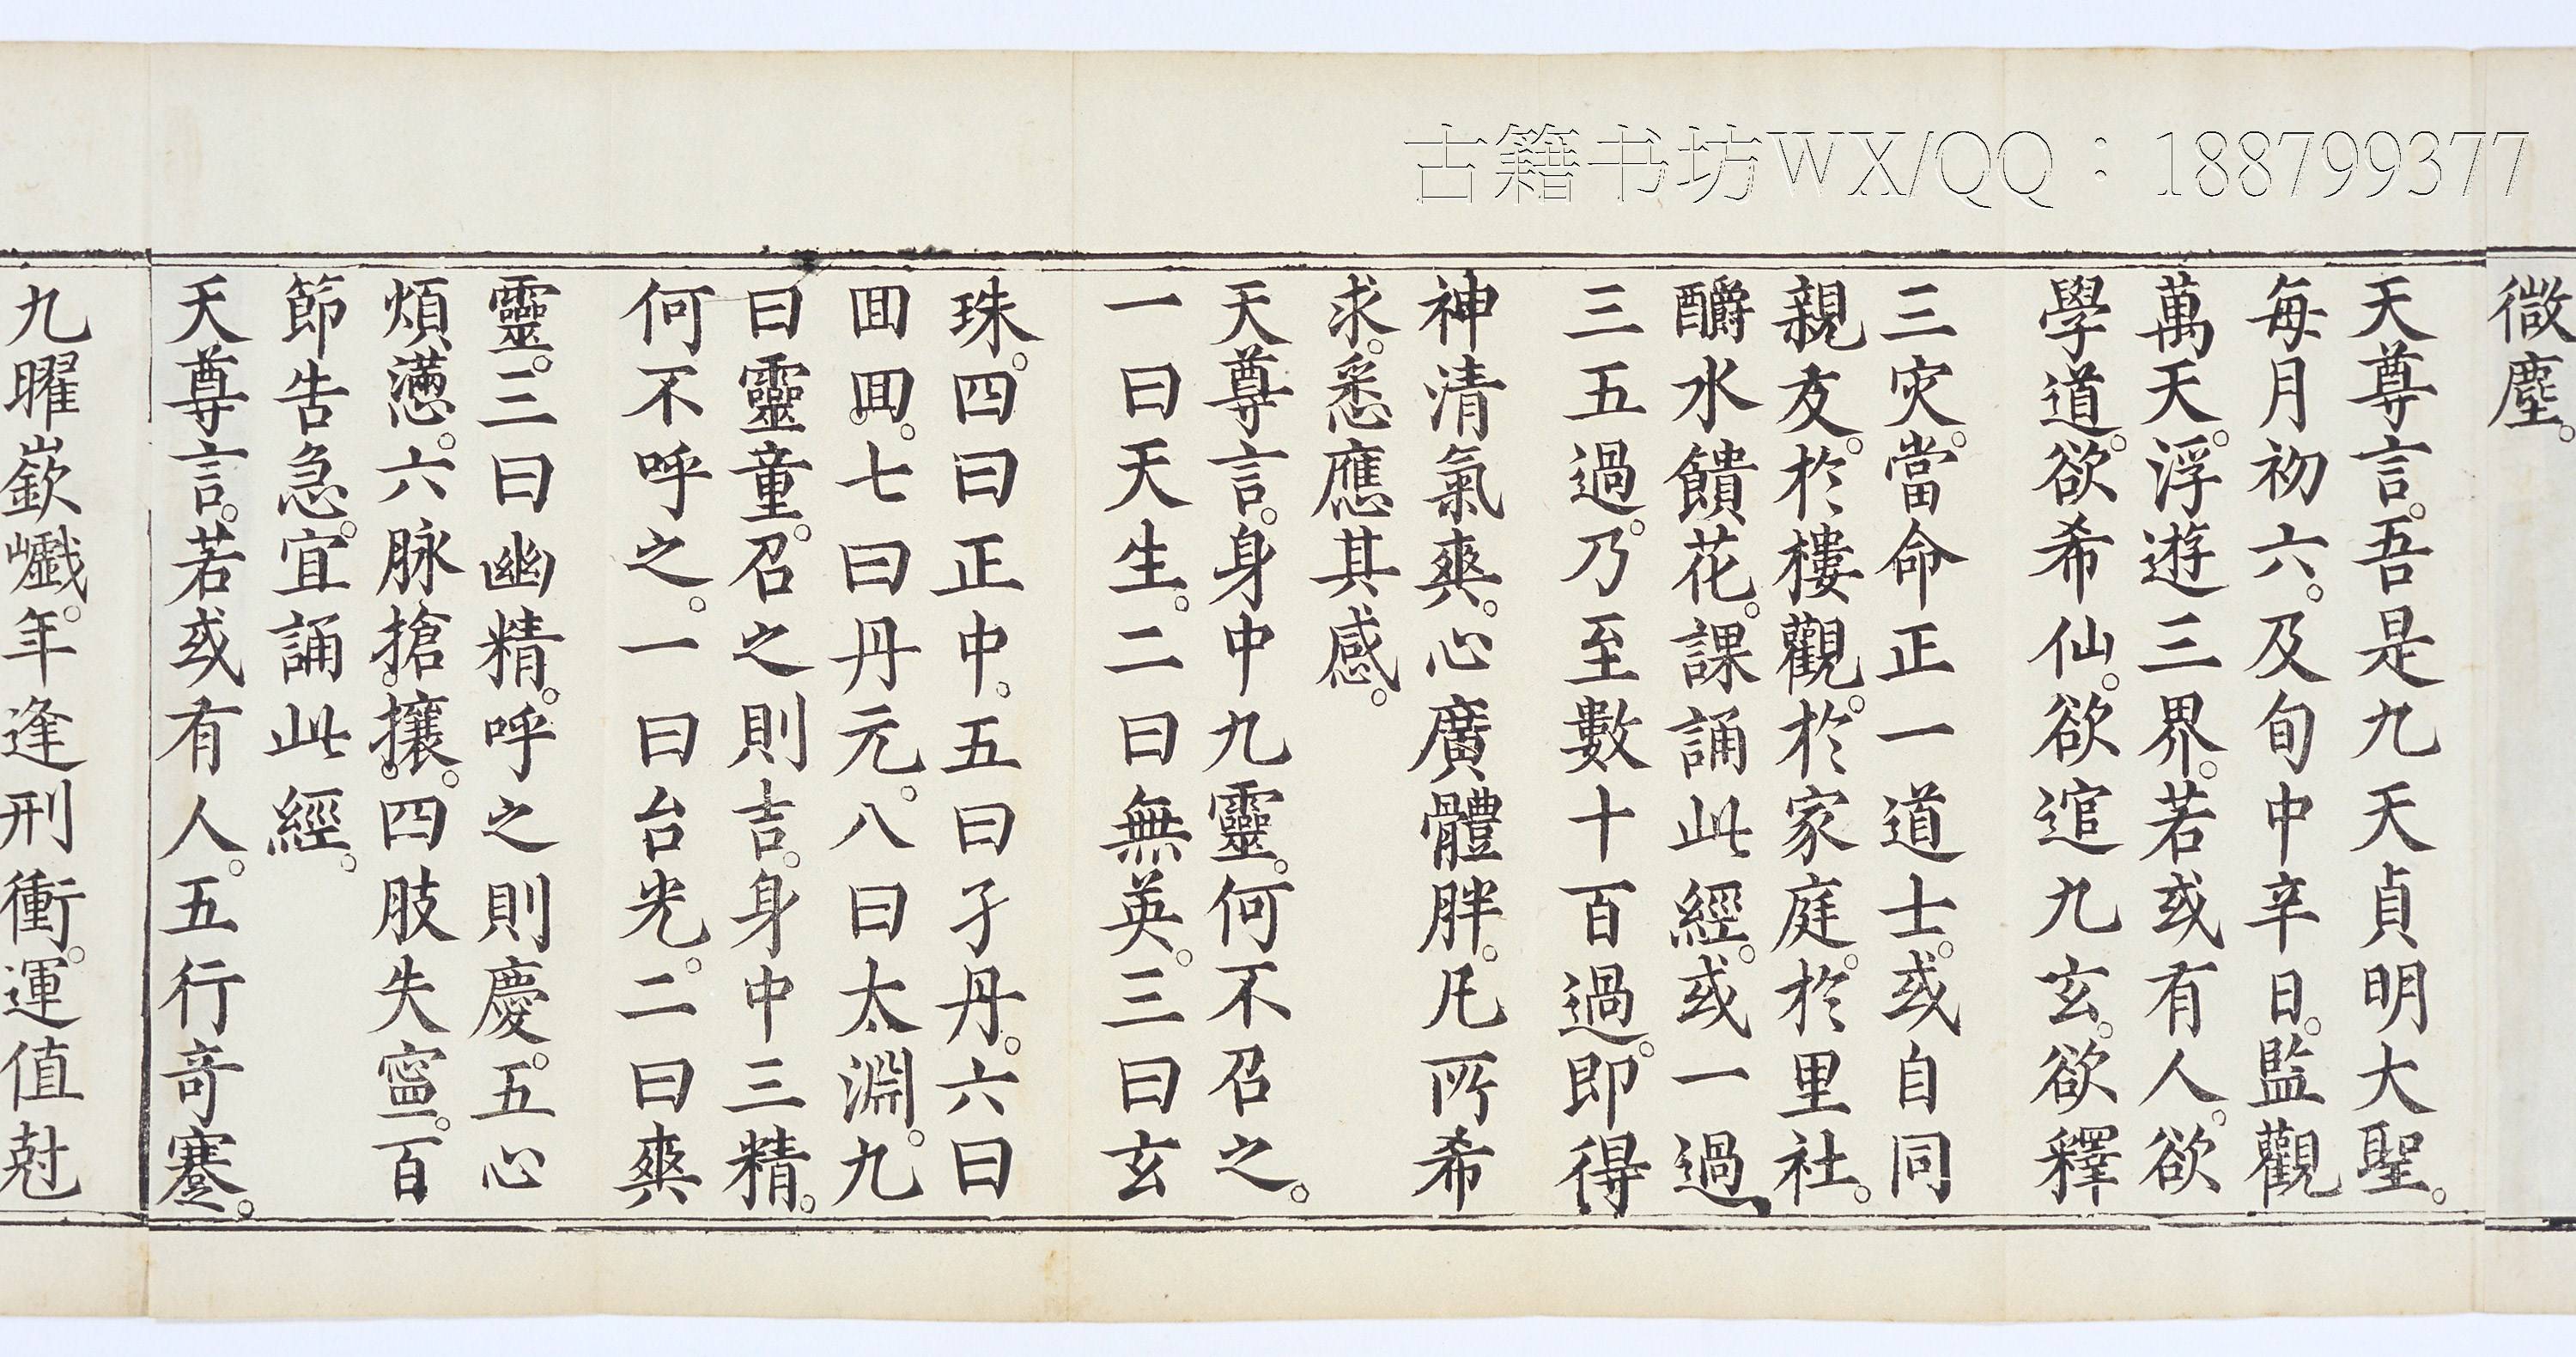 古籍书坊WX/QQ：188799377
微塵。
天尊言。吾是九天貞明大聖。
每月初六。及旬中辛日。監觀
萬天。浮遊三界。若或有人。欲
學道。欲希仙。欲逭九玄。欲釋
三灾。當命正一道士。或自同
親友。於樓觀。於家庭。於里社。
醮水饋花。課誦此經。或一過
三五過。乃至數十百過。即得
神清氣爽。心廣體胖。凡所希
求。悉應其感。
天尊言。身中九靈。何不召之。
一曰天生。二曰無英。三曰玄
珠。四曰正中。五曰孑丹。六曰
囬囬。七曰丹元。八曰太淵。九
曰靈童。召之則吉。身中三精。
何不呼之。一曰台光。二曰爽
靈。三曰幽精。呼之則慶。五心
煩懣。六脉搶攘。四肢失寍。百
節告急。宜誦此經。
天尊言。若或有人。五行奇蹇。
九曜嶔巇。年逢刑衝。運值尅